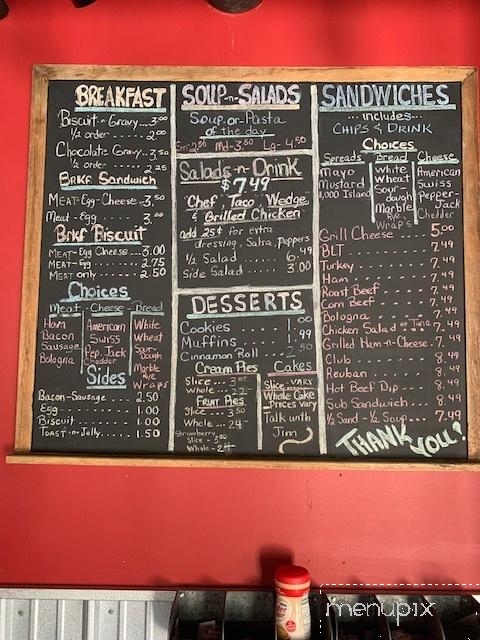 BREAKFAST
Biscuit-n-Gravy...3.00
1/2 order ..... 2.00
Chocolate Gravy..3.50
1/2 order ..... 2.25
Brkf Sandwich
MEAT-Egg-Cheese..3.50
Meat-Egg ..... 3.00
Brkf Biscuit
MEAT-Egg Cheese...3.00
MEAT-Egg ..... 2.75
MEAT only ..... 2.50
Choices
Meat - Cheese - Bread
Ham American White
Bacon Swiss Wheat
Sausage Pep. Jack Sour-dough
Bologna Chedder Marble
Rye
Wraps
Sides
Bacon-Sausage ..... 2.50
Egg ..... 1.00
Biscuit ..... 1.00
TOAST-n-Jelly ..... 1.50
SOUP-n-SALADS
Soup-or-Pasta
of the day
Sm-2.50 Md-3.50 Lg-4.50
Salads-n-Drink
$7.49
"Chef, Taco, Wedge,
& Grilled Chicken"
add 25¢ for extra
dressing, Salsa, Peppers
1/2 Salad ..... 6.49
Side Salad ..... 3.00
DESSERTS
Cookies 1.00
Muffins 1.99
Cinnamon Roll .. 2.50
Cream Pies
Slice ... 3.50
Whole ...
FRUIT PIES
Slice ... 3.50
Whole ... 24
Strawberry
Slice - 3.50
Whole - 24
Cakes
Slice.. VARY
Whole Cake
Prices vary
Talk with
Jim
SANDWICHES
...includes...
CHIPS & DRINK
Choices
Spreads Bread Cheese
Mayo White American
Mustard Wheat Swiss
1,000 Island Sour-dough Pepper-Jack
Marble Chedder
Rye
Wraps
Grill Cheese ..... 5.00
BLT ..... 7.49
Turkey ..... 7.49
Ham ..... 7.49
Roast Beef ..... 7.49
Corn Beef ..... 7.49
Bologna ..... 7.49
Chicken Salad or Tuna . 7.49
Grilled Ham-n-Cheese .. 7.49
Club ..... 8.49
Reuban ..... 8.49
Hot Beef Dip ..... 8.49
Sub Sandwich .... 8.49
1/2 Sand - 1/2 Soup... 7.49
THANK YOU!
menupix